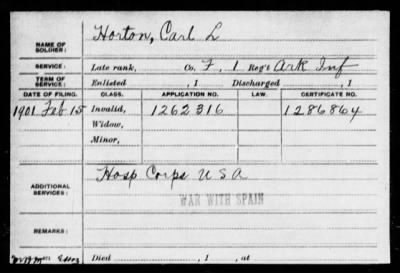 NAME OF SOLDIER: Horton, Carl L
SERVICE: Late rank, Co. F, 1 Reg't Ark Inf
TERM OF SERVICE: Enlisted , 1 Discharged , 1
DATE OF FILING. CLASS. APPLICATION NO. LAW. CERTIFICATE NO.
1901 Feb 15 Invalid, 1262316 1286864
Widow,
Minor,
ADDITIONAL SERVICES: Hosp Corps U S A
WAR WITH SPAIN
REMARKS:
Died , 1 , at